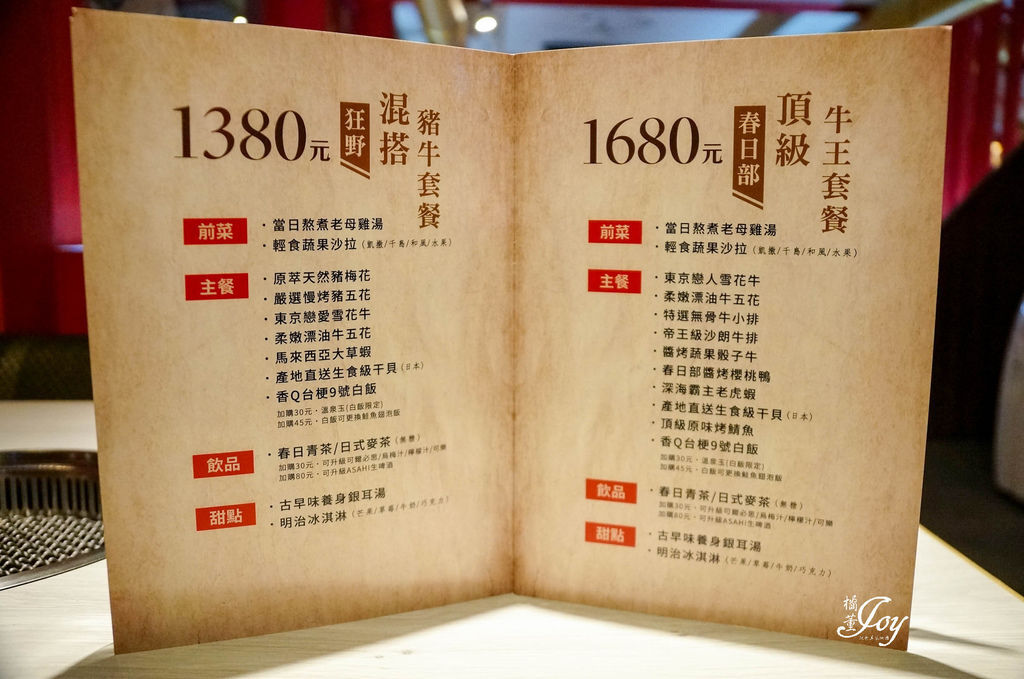 1380元
狂野
混搭
豬牛套餐
前菜
・當日熬煮老母雞湯
・輕食蔬果沙拉(凱撒/千島/和風/水果)
主餐
・原萃天然豬梅花
・嚴選慢烤豬五花
・東京戀愛雪花牛
・柔嫩漂油牛五花
・馬來西亞大草蝦
・產地直送生食級干貝(日本)
・香Q台梗9號白飯
加購30元・溫泉玉(白飯限定)
加購45元・白飯可更換鮭魚翅泡飯
飲品
・春日青茶/日式麥茶(無糖)
加購30元・可升級可爾必思/烏梅汁/檸檬汁/可樂
加購80元・可升級ASAHI生啤酒
甜點
・古早味養身銀耳湯
・明治冰淇淋(芒果/草莓/牛奶/巧克力)
1680元
春日部
頂級
牛王套餐
前菜
・當日熬煮老母雞湯
・輕食蔬果沙拉(凱撒/千島/和風/水果)
主餐
・東京戀人雪花牛
・柔嫩漂油牛五花
・特選無骨牛小排
・帝王級沙朗牛排
・醬烤蔬果骰子牛
・春日部醬烤櫻桃鴨
・深海霸主老虎蝦
・產地直送生食級干貝(日本)
・頂級原味烤鯖魚
・香Q台梗9號白飯
加購30元・溫泉玉(白飯限定)
加購45元・白飯可更換鮭魚翅泡飯
飲品
・春日青茶/日式麥茶(無糖)
加購30元・可升級可爾必思/烏梅汁/檸檬汁/可樂
加購80元・可升級ASAHI生啤酒
甜點
・古早味養身銀耳湯
・明治冰淇淋(芒果/草莓/牛奶/巧克力)
橘董Joy